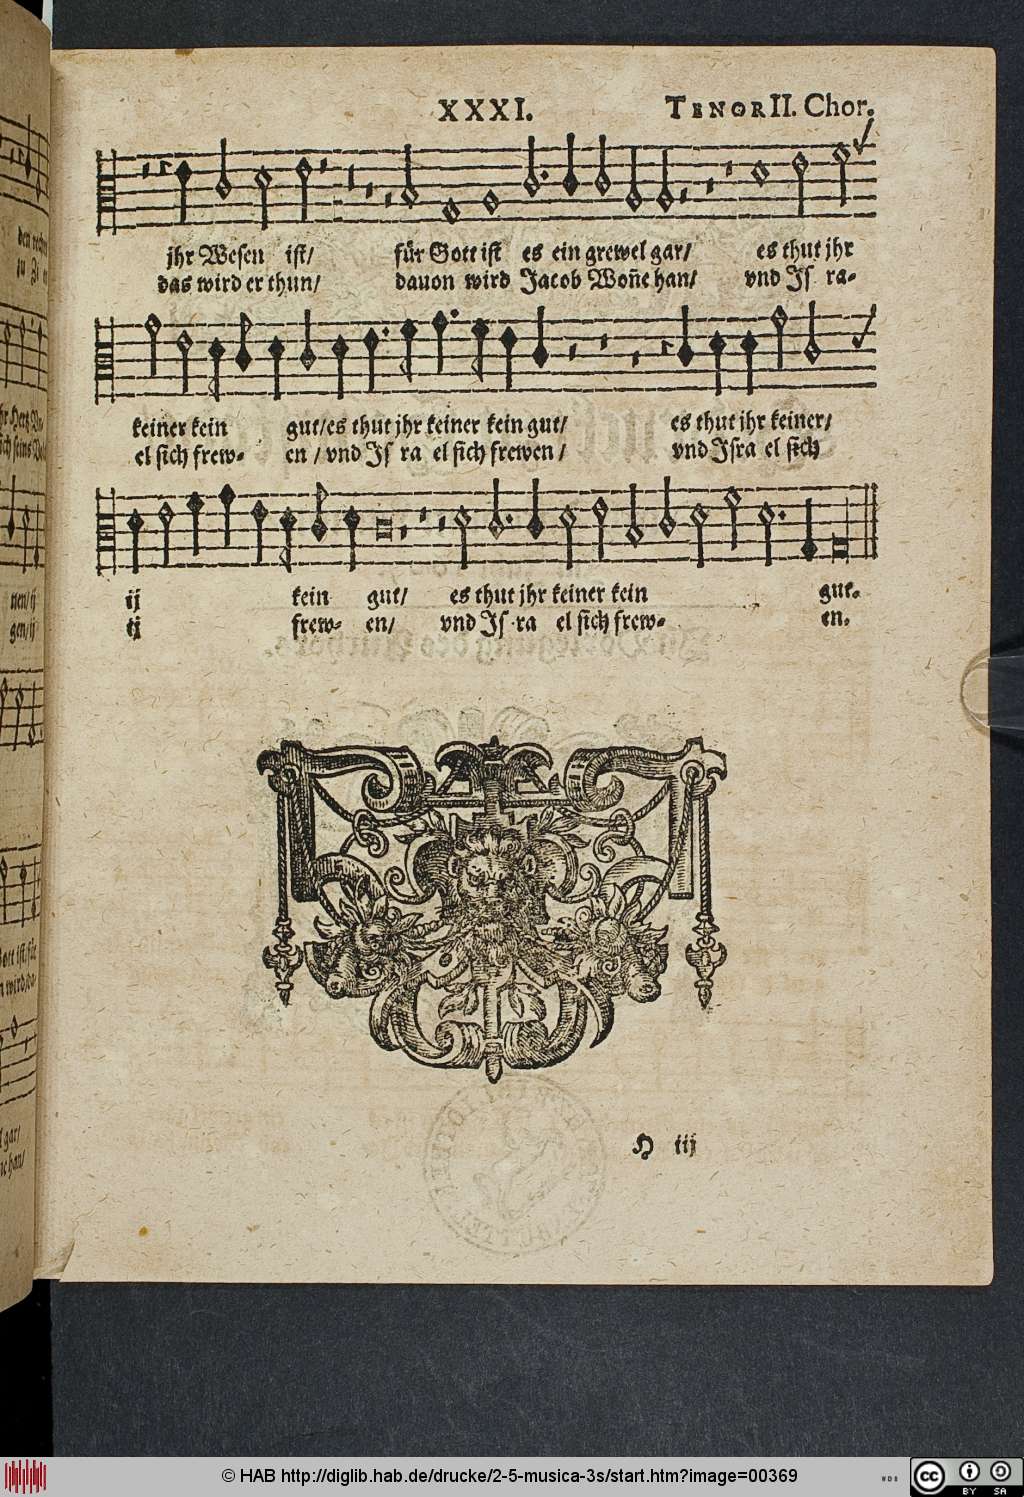 XXXI.
TENOR II. Chor.
jhr Wesen ist/ für Gott ist es ein grewel gar/ es thut jhr
das wird er thun/ dauon wird Jacob Woñe han/ vnd Js ra-
keiner kein gut/es thut jhr keiner kein gut/ es thut jhr keiner/
el sich frew- en / vnd Js ra el sich frewen / vnd Jsra el sich
ij kein gut/ es thut jhr keiner kein gut.
ij frew- en/ vnd Js-ra el sich frew- en.
H iij
© HAB http://diglib.hab.de/drucke/2-5-musica-3s/start.htm?image=00369
WDB
cc BY SA